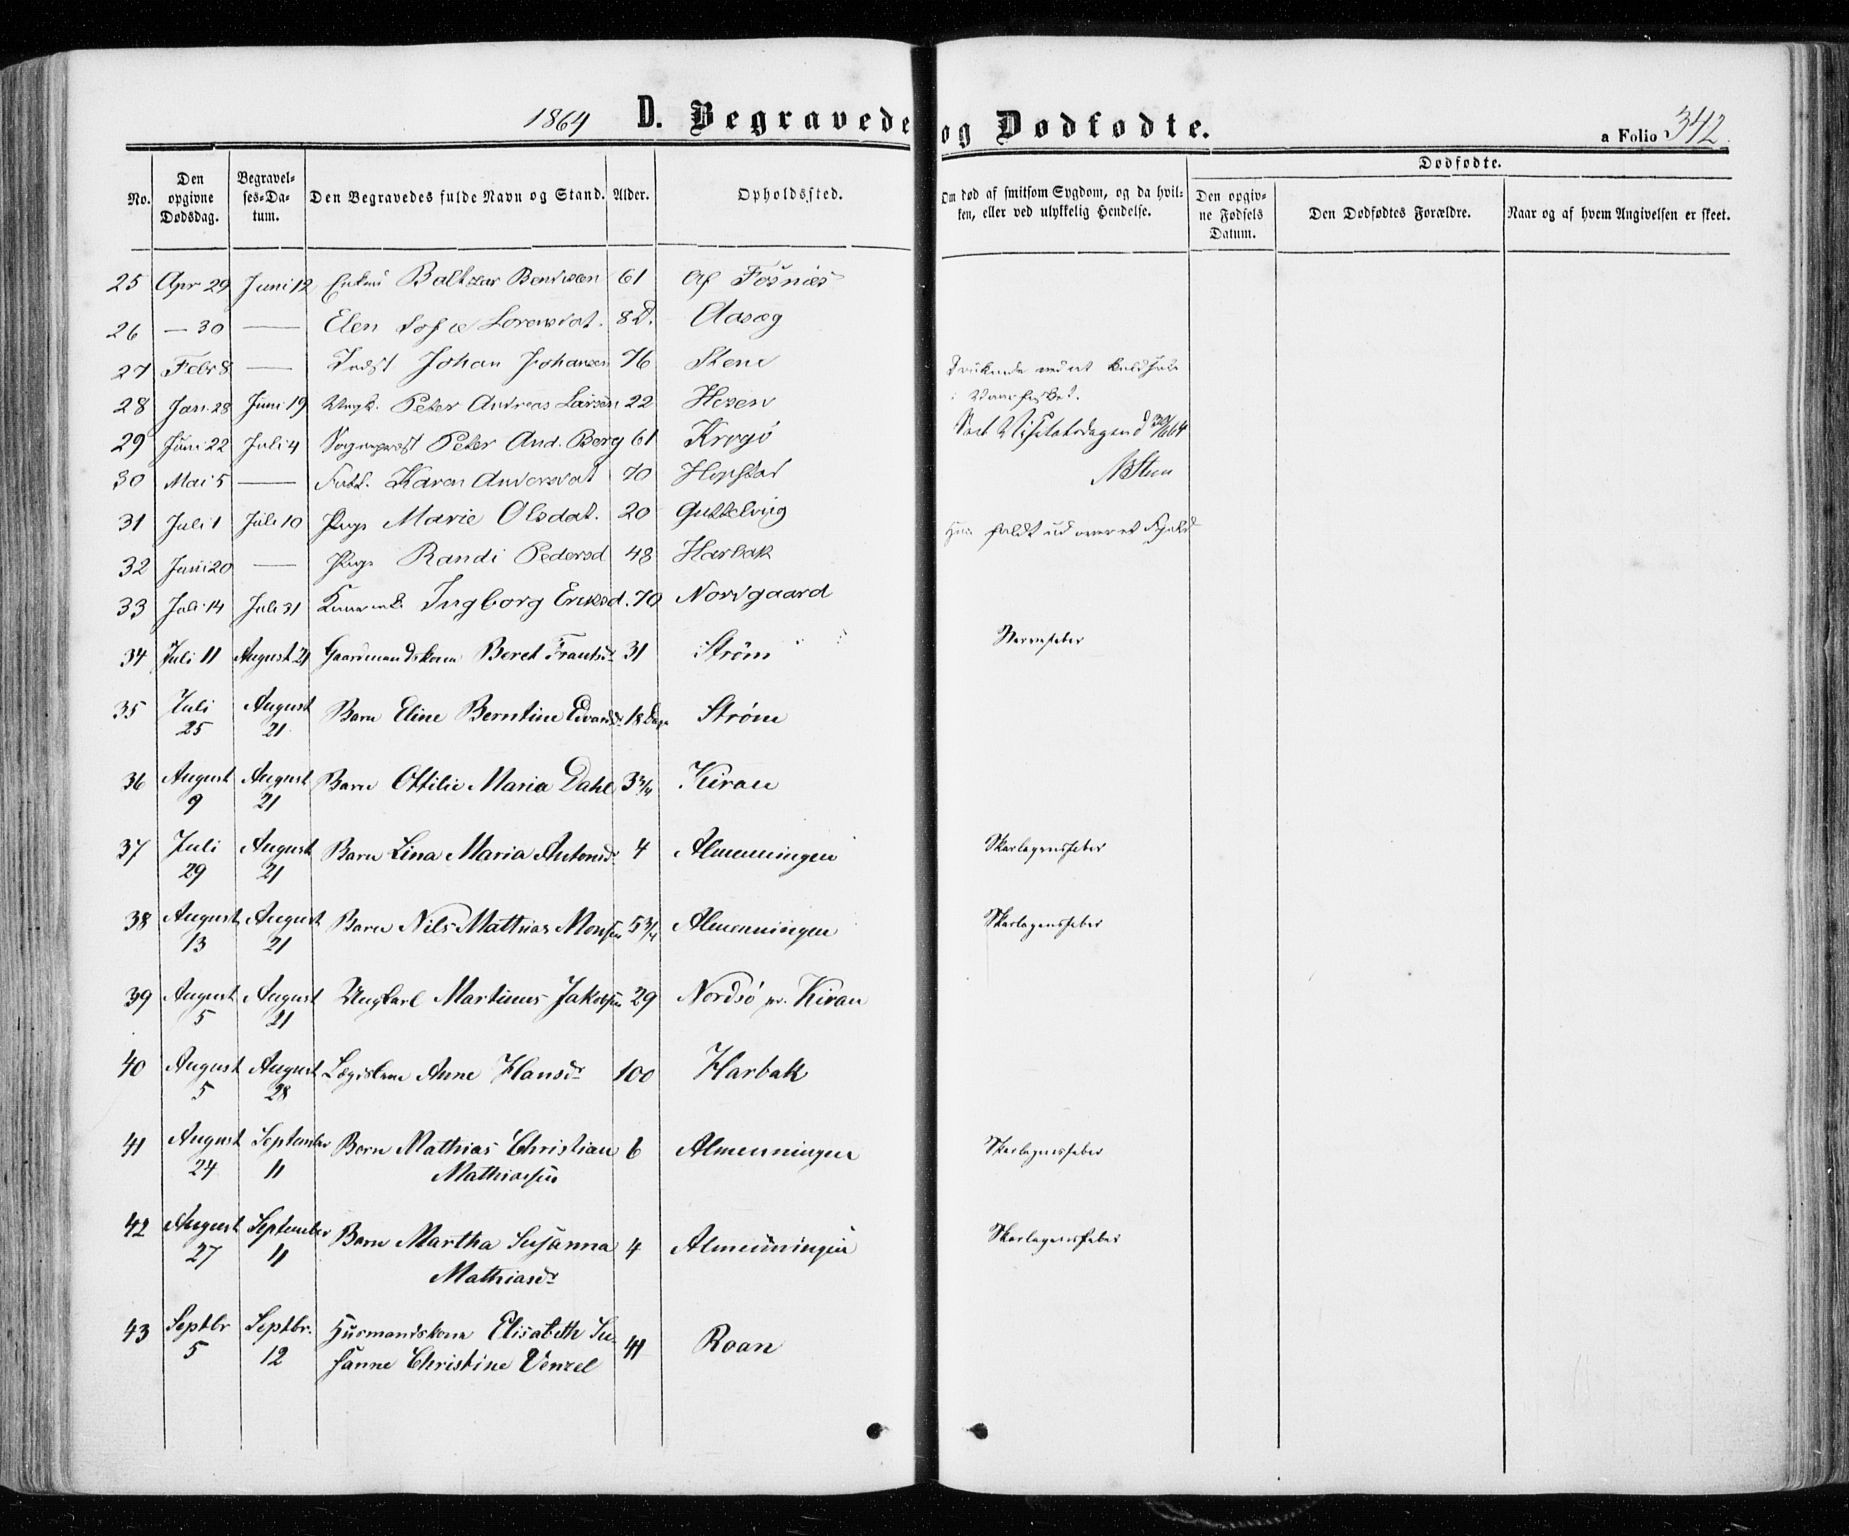 1864 D. Begravede og Dødfødte. a Folio 342.
No. Den opgivne Dødsdag. Begravelses-Datum. Den Begravedes fulde Navn og Stand. Alder. Opholdssted. Om død af smitsom Sygdom, og da hvilken, eller ved ulykkelig Hendelse. Dødfødte. Den opgivne Fødsels Datum. Den Dødfødtes Forældre. Naar og af hvem Angivelsen er skeet.
25 Apr 29 Juni 12 Baltzar Bendixen 61 af Fosnæs
26 — 30 — Elen Sofie Lorensdat. 8 D. Aasæg
27 Febr 8 — Johan Johansen 76 Stene
28 Jan. 28 Juni 19 Ungk. Peter Andreas Larsen 22 Hosen
29 Juni 22 Juli 4 Sognepræst Peter And. Berg 61 Krogø
30 Mai 5 — Karen Andersdat 70 Hopstad
31 Juli 1 Juli 10 Pige Marie Olsdat. 20 faldt ud over et
32 Juni 20 — Pige Randi Pedersd 48 Harbak
33 Juli 14 Juli 31 Ingborg Eriksd. 70 Nordgaard
34 Juli 11 August 21 Gaardmandskone Beret Frantsdr 31 Strøm Nervefeber
35 Juli 25 August 21 Barn Eline Berntine Edvardsdr 18 Dage Strøm
36 August 9 August 21 Barn Ottilie Maria Dahl 3 3/4 Kiran
37 Juli 29 August 21 Barn Lina Maria Antonsdr 4 Almenningen Skarlagensfeber
38 August 13 August 21 Barn Nils Mathias Monsen 5 3/4 Almenningen Skarlagensfeber
39 August 5 August 21 Ungkarl Martinus Jakobsen 29 Nordsø pr. Kiran
40 August 5 August 28 Lægdslem Anne Hansdr 100 Harbak
41 August 24 September 11 Barn Mathias Christian Mathiassen 6 Almenningen Skarlagensfeber
42 August 27 September 11 Barn Martha Susanna Mathiasdr 4 Almenningen Skarlagensfeber
43 Septbr 5 Septbr. 12 Husmandskone Elisabeth Susanne Christine Venzel 41 Roan